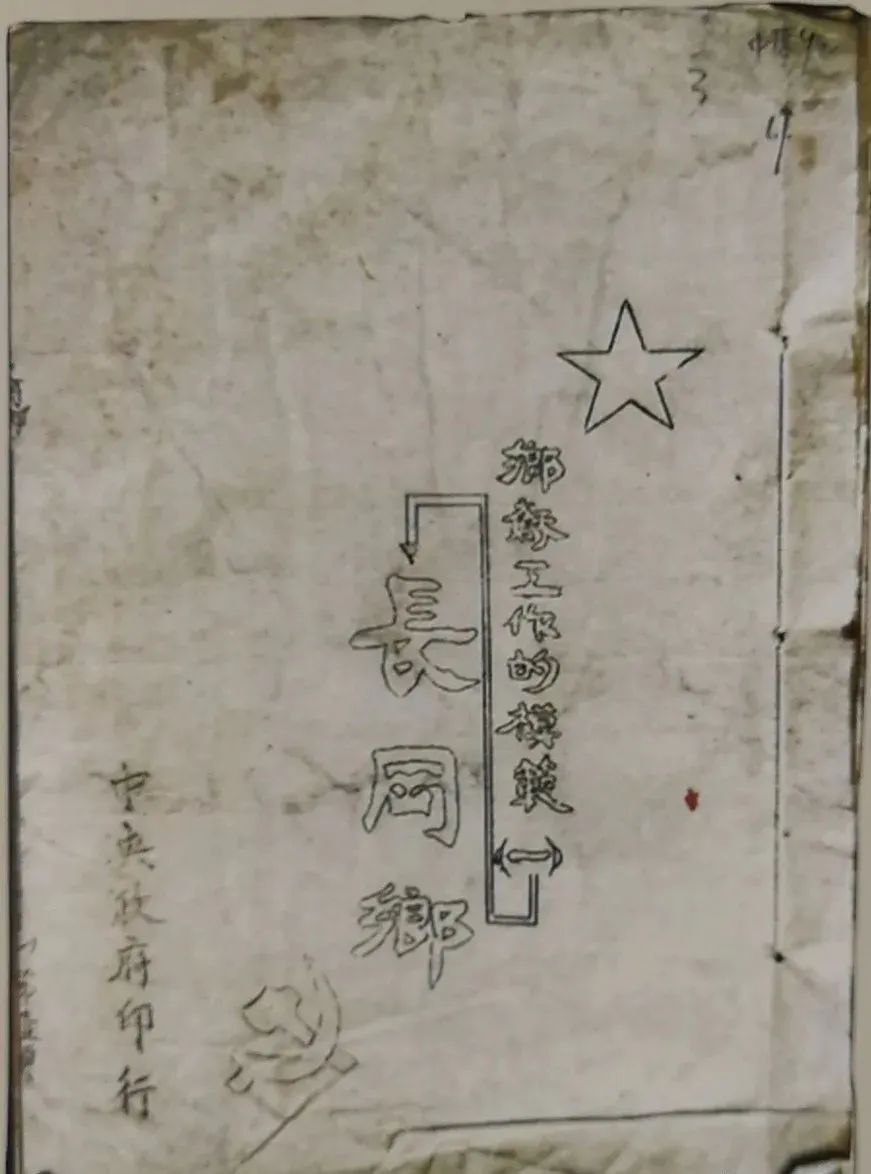 3
4
鄉蘇工作的模範(一)
長岡鄉
中央政府印行